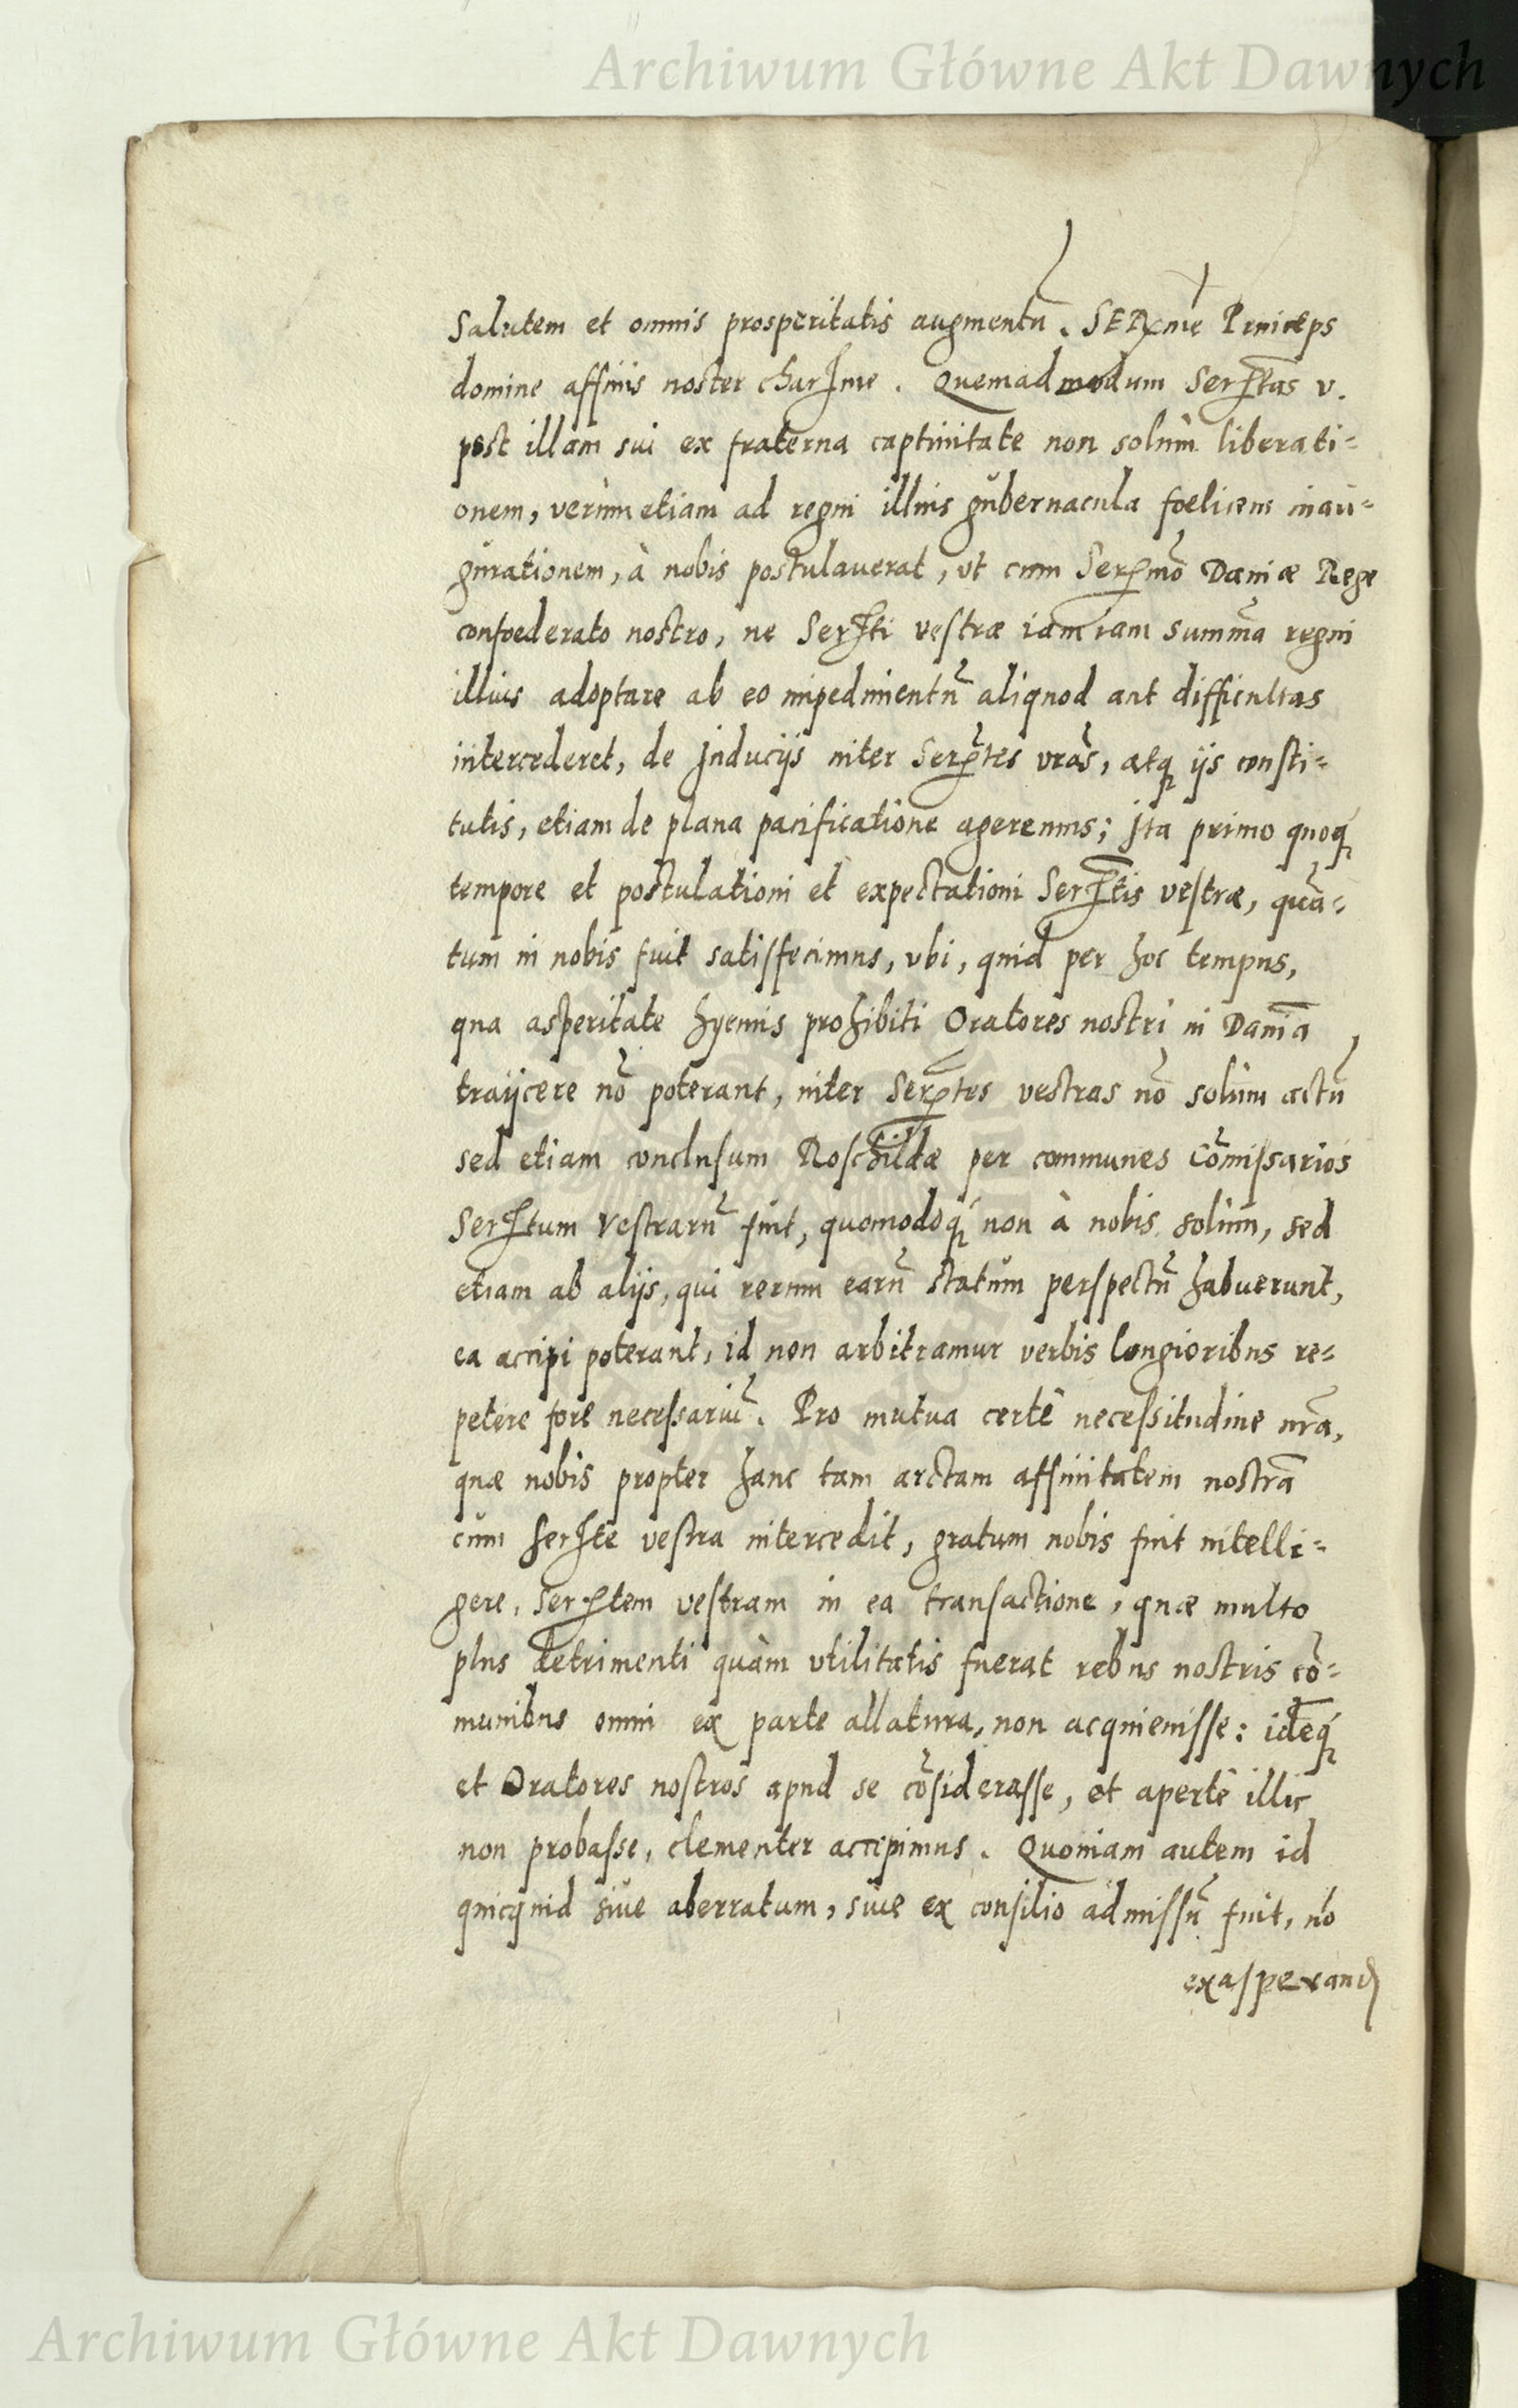 Archiwum Główne Akt Dawnych
Salutem et omnis prosperitatis augmentũ. SERxme Princeps
domine affinis noster charJme. Quemadmodum SerJtas v.
post illam sui ex fraterna captiuitate non solùm liberati-
onem, verùm etiam ad regni illius gubernacula foelicem inau-
gurationem, à nobis postulauerat, vt cum Serᵉᵐo Daniæ Rege
confoederato nostro, ne SerJti vestræ iam iam summã regni
illius adoptare ab eo impedimentũ aliquod aut difficultas
intercederet, de Jnducijs inter Serᵗes vrãs, atq; ijs consti-
tutis, etiam de plana pacificatione ageremus; Jta primo quoq;
tempore et postulationi et expectationi SerJtis vestræ, quã-
tum in nobis fuit satisfecimus, vbi, quid per hoc tempus,
qua asperitate hyemis prohibiti Oratores nostri in Daniã
traijcere nõ poterant, inter Serᵗes vestras nõ solùm actũ
sed etiam conclusum Roschildæ per communes Cõmissarios
SerJtum Vestrarũ fuit, quomodoq; non à nobis solùm, sed
etiam ab alijs, qui rerum earũ statum perspectũ habuerunt,
ea accipi poterant, id non arbitramur verbis longioribus re-
petere fore necessariũ. Pro mutua certè necessitudine nrã,
quæ nobis propter hanc tam arctam affinitatem nostrã
cum SerJte vestra intercedit, gratum nobis fuit intelli-
gere, Serᵗtem vestram in ea transactione, quæ multo
plus detrimenti quàm vtilitatis fuerat rebus nostris cõ-
munibus omni ex parte allatura, non acquieuisse: idẽq;
et Oratores nostros apud se cõsiderasse, et apertè illic
non probasse, clementer accepimus. Quoniam autem id
quicquid siue aberratum, siue ex consilio admissũ fuit, nõ
exasperand
Archiwum Główne Akt Dawnych